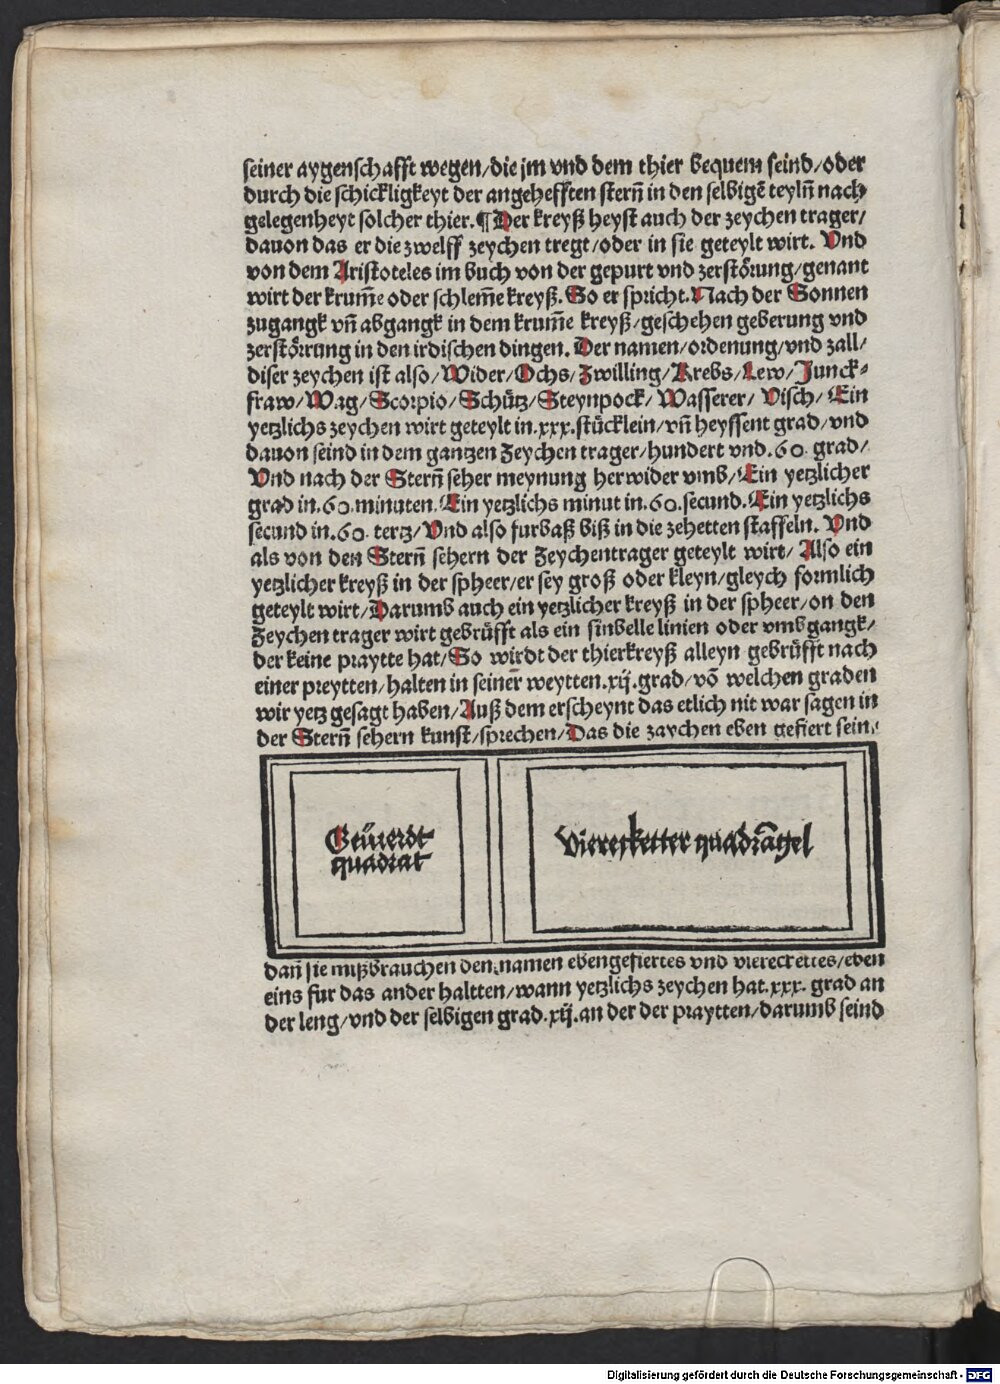 seiner aygenschafft wegen/die jm vnd dem thier bequem seind/oder
durch die schickligkeyt der angehefften stern̄ in den selbigē teyln̄ nach
gelegenheyt solcher thier.¶Der kreyß heyst auch der zeychen trager/
dauon das er die zwelff zeychen tregt/oder in sie geteylt wirt. Vnd
von dem Aristoteles im buch von der gepurt vnd zerstörung/genant
wirt der krum̄e oder schlem̄e kreyß. So er spricht. Nach der Sonnen
zugangk vn̄ abgangk in dem krum̄e kreyß/geschehen geberung vnd
zerstörrung in den irdischen dingen. Der namen/ordenung/vnd zall/
diser zeychen ist also/Wider/Ochs/Zwilling/Krebs/Lew/Junck⸗
fraw/Wag/Scorpio/Schütz/Steynpock/Wasserer/Visch/Ein
yetzlichs zeychen wirt geteylt in.xxx.stücklein/vn̄ heyssent grad/vnd
dauon seind in dem gantzen Zeychen trager/hundert vnd.60 grad/
Vnd nach der Stern̄ seher meynung her wider vmb/Ein yetzlicher
grad in.60.minuten. Ein yetzlichs minut in.60.secund. Ein yetzlichs
secund in.60. tertz/Vnd also furbaß biß in die zehetten staffeln. Vnd
als von den Stern̄ sehern der Zeychentrager geteylt wirt/ Also ein
yetzlicher kreyß in der spheer/er sey groß oder kleyn/gleych formlich
geteylt wirt/Darumb auch ein yetzlicher kreyß in der spheer/on den
Zeychen trager wirt gebrüfft als ein sinbelle linien oder vmbgangk/
der keine praytte hat/So wirdt der thierkreyß alleyn gebrüfft nach
einer preytten/halten in seiner weytten.xij.grad/vō welchen graden
wir yetz gesagt haben/Auß dem erscheynt das etlich nit war sagen in
der Stern̄ sehern kunst/sprechen/Das die zaychen eben gefiert sein/
Geüierdt
quadrat
Viereckетter quadrāgel
dan̄ sie mißbrauchen den namen ebengefiertes vnd viereckettes/eben
eins fur das ander haltten/wann yetzlichs zeychen hat.xxx. grad an
der leng/vnd der selbigen grad.xij.an der der praytten/darumb seind
Digitalisierung gefördert durch die Deutsche Forschungsgemeinschaft - DFG